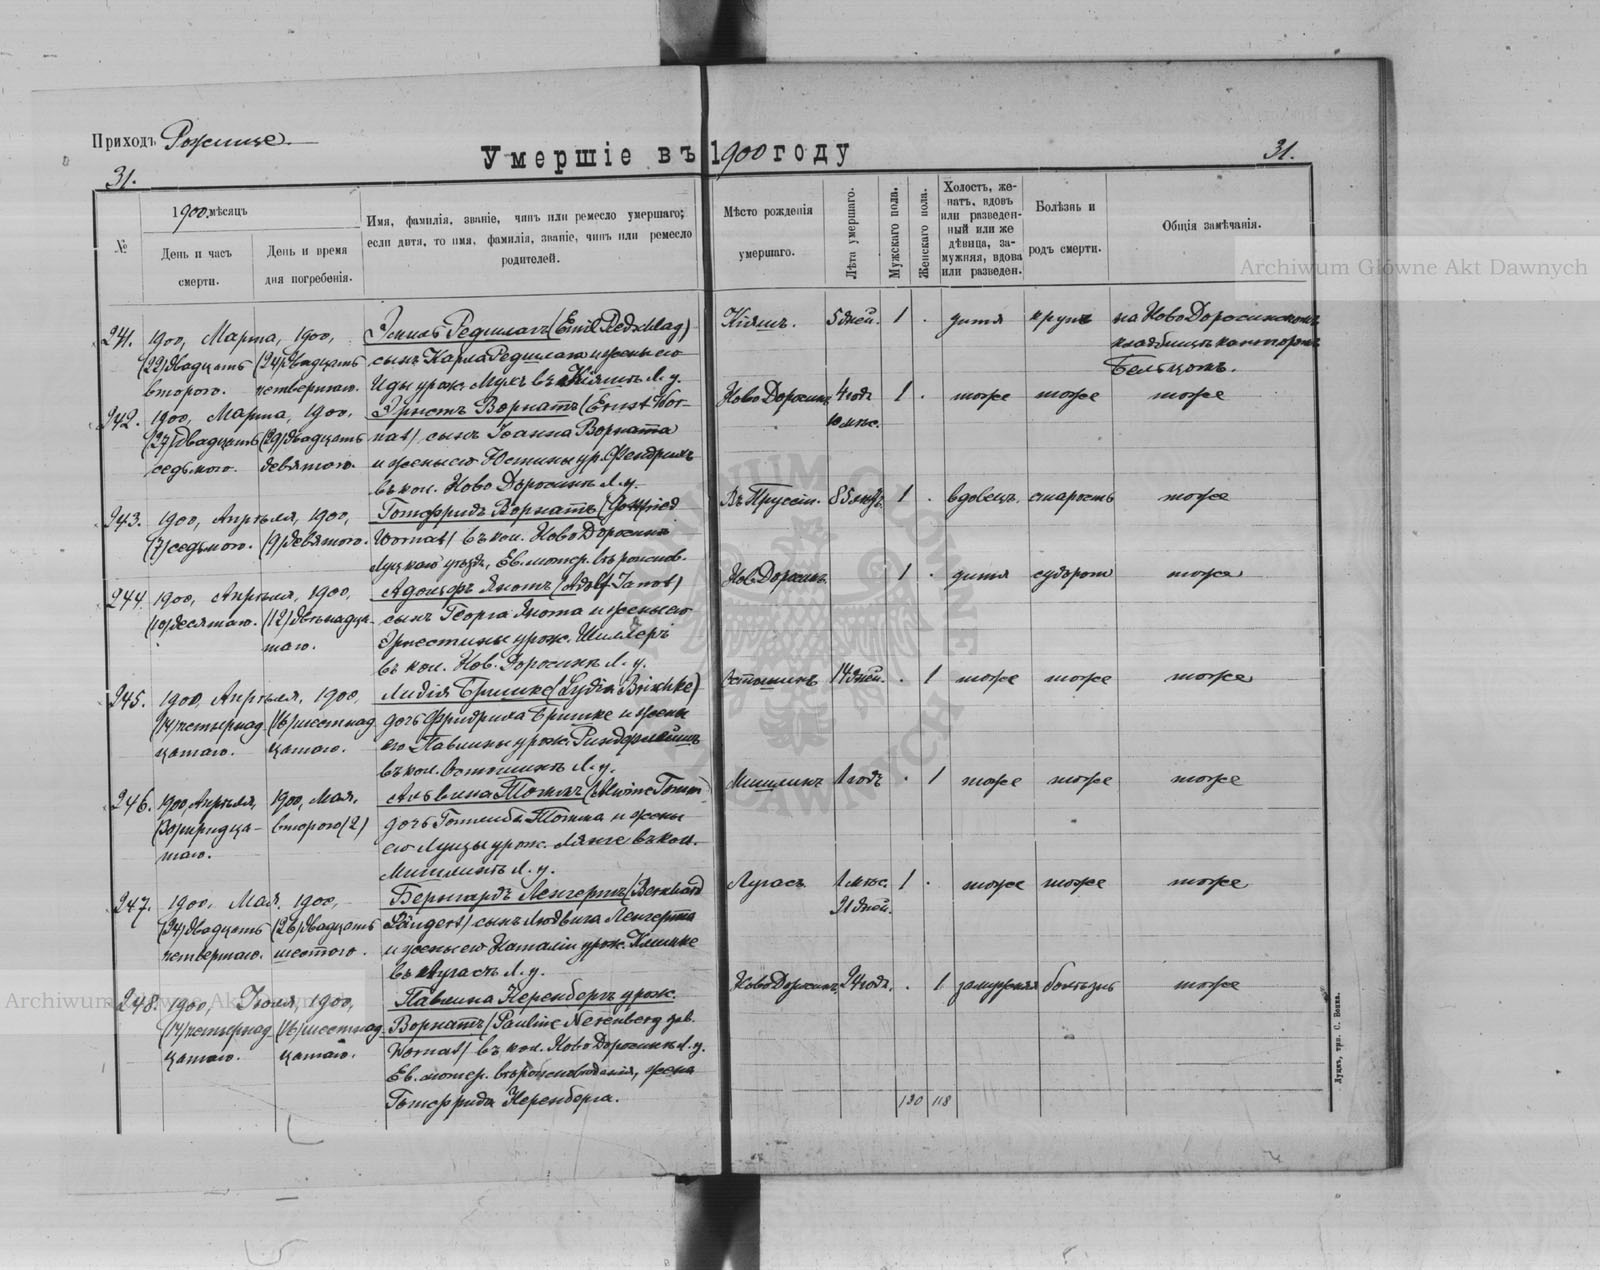 Приходъ Рожище.
Умершіе въ 1900 году
31.
31.
№
1900 мѣсяцъ
День и часъ смерти.
День и время дня погребенія.
Имя, фамилія, званіе, чинъ или ремесло умершаго;
если дитя, то имя, фамилія, званіе, чинъ или ремесло
родителей.
Мѣсто рожденія
умершаго.
Лѣта умершаго.
Мужскаго пола.
Женскаго пола.
Холостъ, же-
натъ, вдовъ
или разведен-
ный или же
дѣвица, за-
мужняя, вдова
или разведен.
Болѣзнь и
родъ смерти.
Общія замѣчанія.
241. 1900, Марта, 1900, Эмиль Редшлагъ (Emil Redschlag) Кіяшъ. 5 дней. 1 . дитя крупъ на Ново Доросинскомъ
(22) двадцать (24) двадцать сынъ Карла Редшлага и жены его кладбищѣ канторомъ
второго. четвертаго. Иды урож. Мухъ въ Кіяшѣ Л. у. Бельцомъ.
242. 1900, Марта, 1900, Эрнстъ Ворнатъ (Ernst Wor- Ново Доросинъ 4 года 1 . тоже тоже тоже
(27) двадцать (29) двадцать nat) сынъ Іоанна Ворната 10 мѣс.
седьмого. девятаго. и жены его Юстины ур. Фендрихъ
въ кол. Ново Доросинѣ Л. у.
243. 1900, Апрѣля, 1900, Готфридъ Ворнатъ (Gottfried Въ Пруссіи. 85 лѣтъ. 1 . вдовецъ. старость тоже
(7) седьмого. (9) девятаго. Wornat) въ кол. Ново Доросинѣ
Луцкаго уѣзда, Ев. лютер. вѣроиспов.
244. 1900, Апрѣля, 1900, Адольфъ Янотъ (Adolf Janot) Нов. Доросинъ 1 . дитя судорог тоже
(10) десятаго. (12) двѣнадца- сынъ Георга Янота и жены его
таго. Эрнестины урож. Шиллеръ
въ кол. Нов. Доросинѣ Л. у.
245. 1900, Апрѣля, 1900, Лидія Бришке (Lydia Brischke) 14 дней. . 1 тоже тоже тоже
(14) четырнад (16) шестнад дочь Фридриха Бришке и жены
цатаго. цатаго. его Павлины урож.
въ кол. Л. у.
246. 1900, Апрѣля, 1900, Мая, Альвина Томмъ (Alwine Tomm) 1 годъ . 1 тоже тоже тоже
(30) тридца- второго (2) дочь Готлиба Томма и жены
таго. его Луизы урож. Лянге въ кол.
Л. у.
247. 1900, Мая, 1900, Бернгардъ Ленгертъ (Bernhard Лугасъ. 1 мѣс. 1 . тоже тоже тоже
(24) двадцать (26) двадцать Längert) сынъ Людвига Ленгерта 21 дней.
четвертаго. шестого. и жены его Наталіи урож. Климке
въ Лугасѣ Л. у.
248. 1900, Іюля, 1900, Павлина Неренбергъ урож. Ново Доросинъ. 24 года. . 1 замужняя болѣзнь тоже
(14) четырнад (16) шестнад Ворнатъ (Pauline Nerenberg geb.
цатаго. цатаго. Wornat) въ кол. Ново Доросинѣ Л. у.
Ев. лютер. вѣроисповѣданія, жена
Готфрида Неренберга.
130 118
Луцкъ, тип. С. Бенка.
Archiwum Główne Akt Dawnych
Archiwum Główne Akt Dawnych
ARCHIWUM GŁÓWNE AKT DAWNYCH